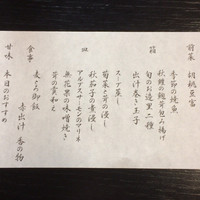 前菜　胡桃豆富
季節の焼魚
秋鮭の磯部包み揚げ
旬のお造里二種
出汁巻き玉子
スープ蒸し
菊菜と茸の浸し
秋茄子の煮浸し
アトランティックサーモンのマリネ
無花果の味噌焼き
芋の雲和え
食事　麦とろ御飯
赤出汁　香の物
甘味　本日のおすすめ